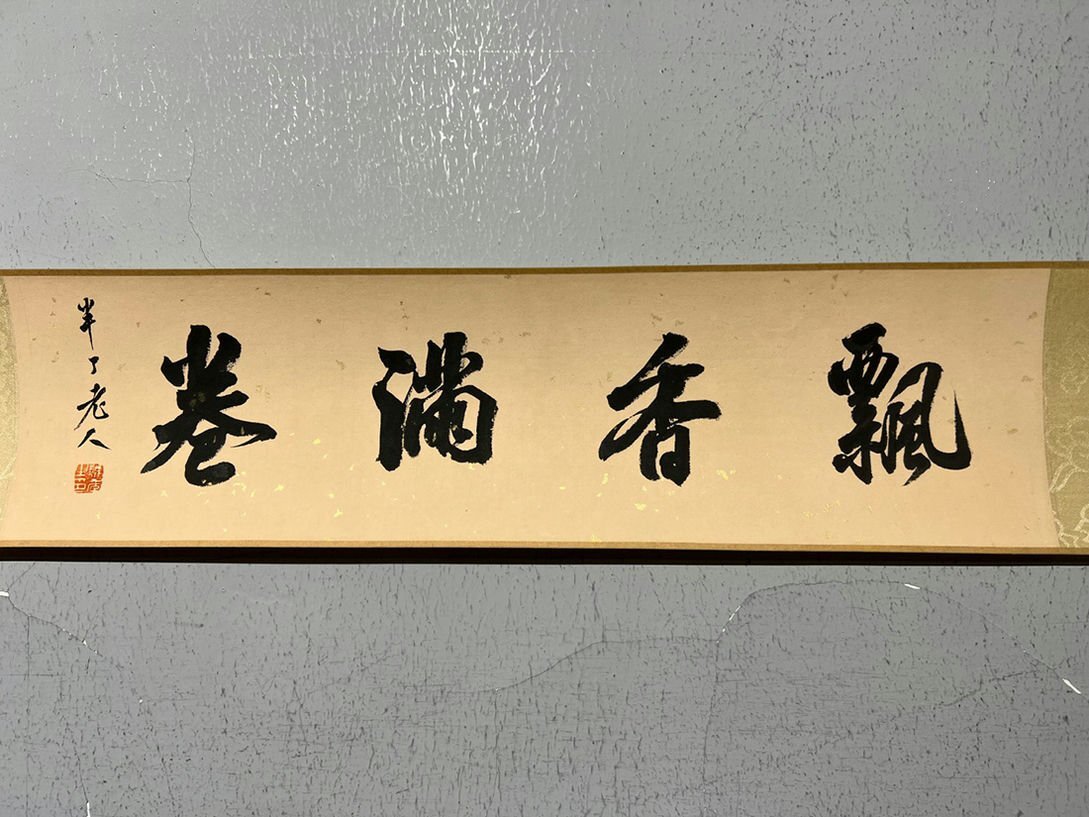 飄香滿卷
半丁老人